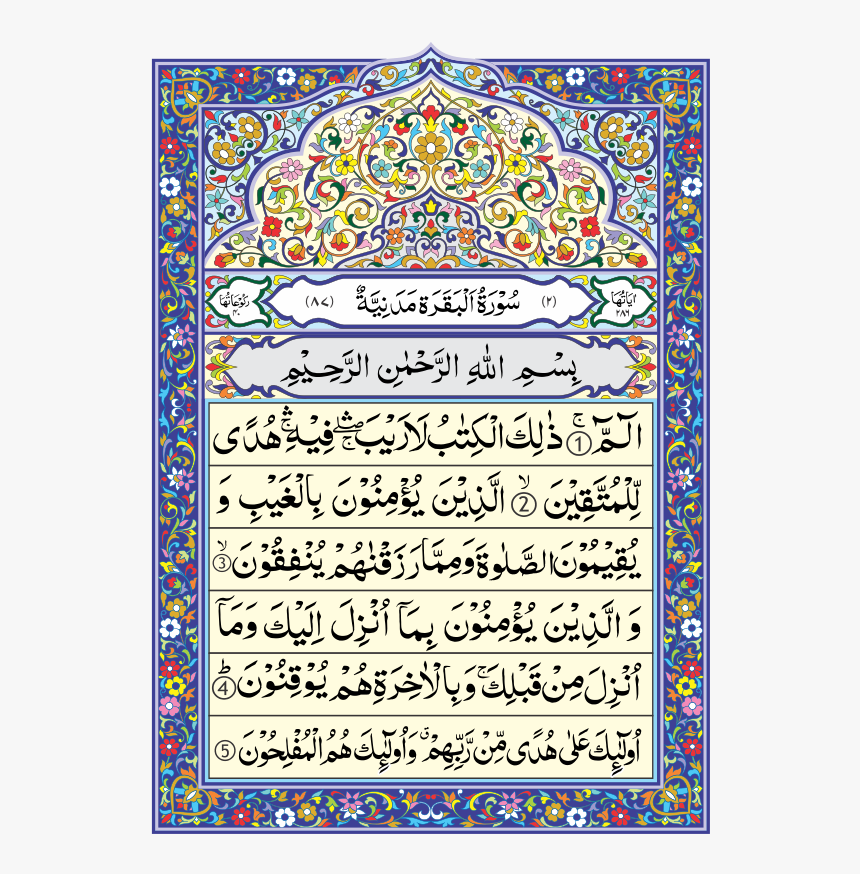 اٰيَاتُهَا ٢٨٦ (٢) سُوْرَةُ الْبَقَرَةِ مَدَنِيَّةٌ (٨٧) رُكُوْعَاتُهَا ٤٠
بِسْمِ اللّٰهِ الرَّحْمٰنِ الرَّحِيْمِ
الٓمّٓ ۚ ① ذٰلِكَ الْكِتٰبُ لَا رَيْبَ ۛۖۚ فِيْهِ ۛۚ هُدًى
لِّلْمُتَّقِيْنَ ۙ ② الَّذِيْنَ يُؤْمِنُوْنَ بِالْغَيْبِ وَ
يُقِيْمُوْنَ الصَّلٰوةَ وَمِمَّا رَزَقْنٰهُمْ يُنْفِقُوْنَ ۙ ③
وَ الَّذِيْنَ يُؤْمِنُوْنَ بِمَآ اُنْزِلَ اِلَيْكَ وَمَآ
اُنْزِلَ مِنْ قَبْلِكَ ۚ وَبِالْاٰخِرَةِ هُمْ يُوْقِنُوْنَ ؕ ④
اُولٰٓئِكَ عَلٰى هُدًى مِّنْ رَّبِّهِمْ ۗ وَاُولٰٓئِكَ هُمُ الْمُفْلِحُوْنَ ⑤